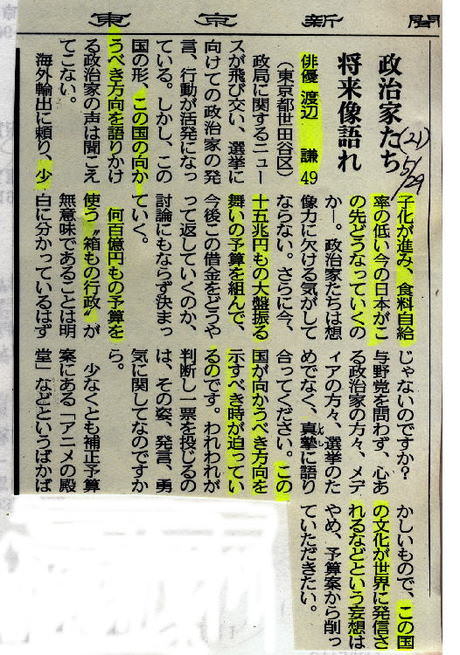 東京新聞
政治家たち
将来像語れ
(21)
5/29
俳優 渡辺 謙 49
（東京都世田谷区）
政局に関するニュー
スが飛び交い、選挙に
向けての政治家の発
言、行動が活発になっ
ている。しかし、この
国の形、この国の向か
うべき方向を語りかけ
る政治家の声は聞こえ
てこない。
海外輸出に頼り、少
子化が進み、食料自給
率の低い今の日本がこ
の先どうなっていくの
か―。政治家たちは想
像力に欠ける気がして
ならない。さらに今、
十五兆円もの大盤振る
舞いの予算を組んで、
今後この借金をどうや
って返していくのか、
討論にもならず決まっ
ていく。
何百億円もの予算を
使う〝箱もの行政〟が
無意味であることは明
白に分かっているはず
じゃないのですか？
与野党を問わず、心あ
る政治家の方々、メデ
ィアの方々、選挙のた
めでなく、真摯に語り
合ってください。この
国が向かうべき方向を
示すべき時が迫ってい
るのです。われわれが
判断し一票を投じるの
は、その姿、発言、勇
気に関してなのですか
ら。
少なくとも補正予算
案にある「アニメの殿
堂」などというばかば
かしいもので、この国
の文化が世界に発信さ
れるなどという妄想は
やめ、予算案から削っ
ていただきたい。